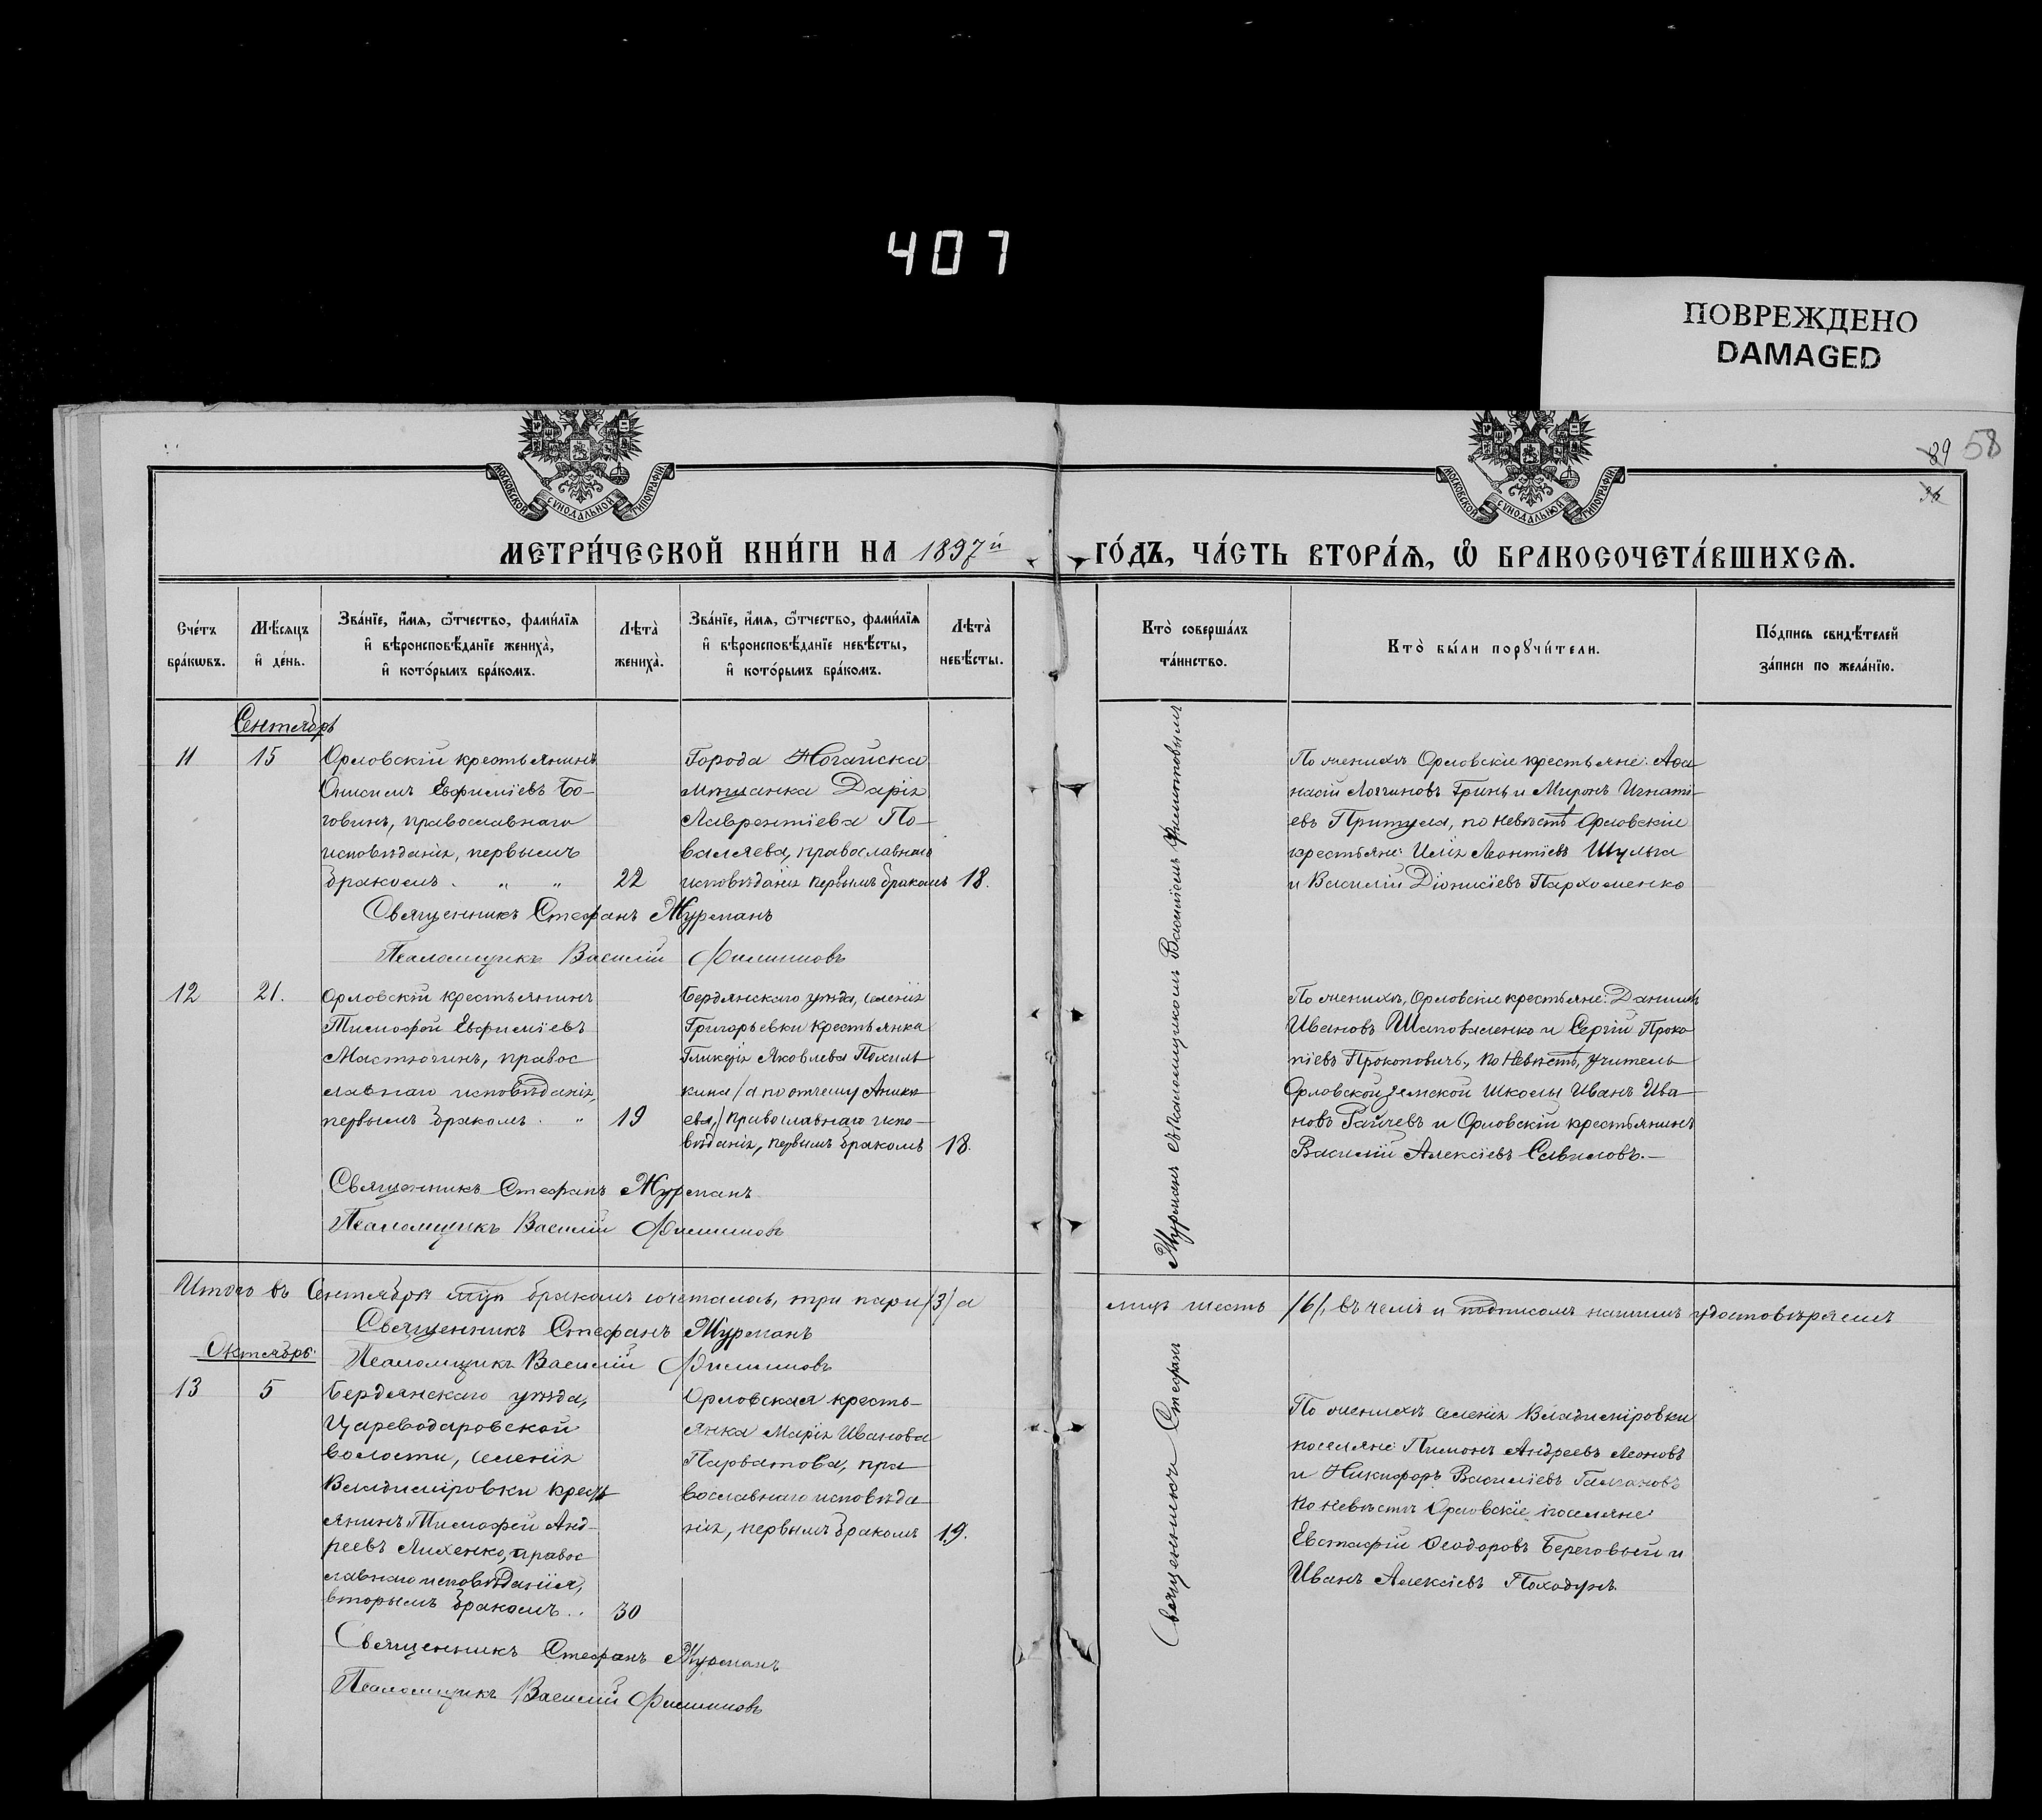 407
ПОВРЕЖДЕНО
DAMAGED
МОСКОВСКОЙ СѴНОДАЛЬНОЙ ТИПОГРАФІИ
МОСКОВСКОЙ СѴНОДАЛЬНОЙ ТИПОГРАФІИ
89 58
МЕТРИ́ЧЕСКОЙ КНИ́ГИ НА 1897й ГО́ДЪ, ЧА́СТЬ ВТОРА́Я, Ѡ҆ БРАКОСОЧЕТА́ВШИХСЯ.
Сче́тъ бра́кѡвъ.
Мѣ́сяцъ и҆ де́нь.
Зва́нїе, и҆́мя, ѻ҆́тчество, фами́лїя и҆ вѣроисповѣ́данїе жениха̀, и҆ кото́рымъ бра́комъ.
Лѣта̀ жениха̀.
Зва́нїе, и҆́мя, ѻ҆́тчество, фами́лїя и҆ вѣроисповѣ́данїе невѣ́сты, и҆ кото́рымъ бра́комъ.
Лѣта̀ невѣ́сты.
Кто̀ соверша́лъ та́инство.
Кто̀ бы́ли порꙋчи́тели.
По́дпись свидѣ́телей за́писи по жела́нїю.
Сентябрь
11
15
Орловскій крестьянинъ
Онисимъ Евфиміевъ Бо-
говинъ, православнаго
исповѣданія, первымъ
бракомъ . " "
22
Города Ногайска
мѣщанка Дарія
Лаврентіева По-
валяева, православнаго
исповѣданія первымъ бракомъ
18.
По женихѣ Орловскіе крестьяне: Аѳа-
насій Гринь и Миронъ Игнаті-
евъ Притула, по невѣстѣ Орловскіе
крестьяне: Илія Леонтіевъ Шульга
и Василій Діонисіевъ Пархоменко
Священникъ Стефанъ Журманъ
Псаломщикъ Василій Филипповъ
12
21.
Орловскій крестьянинъ
Тимофей Евфиміевъ
Мастючинъ, правос
лавнаго исповѣданія,
первымъ бракомъ . "
19
Бердянскаго уѣзда, селенія
Григорьевки крестьянка
Гликерія Яковлева Похиль
кина /а по отчему Аники
ева,/ православнаго испо-
вѣданія, первымъ бракомъ
18.
По женихѣ, Орловскіе крестьяне: Даніилъ
Ивановъ Шаповаленко и Сергій Проко
піевъ Прокоповичъ, по невѣстѣ, учитель
Орловской земской школы Иванъ Ива-
новъ и Орловскій крестьянинъ
Василій Алексіевъ Савиловъ.-
Священникъ Стефанъ Журманъ
Псаломщикъ Василій Филипповъ
Итого въ Сентябрѣ мцѣ бракомъ сочеталось три пары /3/ а
лицъ шесть /6/, въ чемъ и подписомъ нашимъ удостовѣряемъ
Священникъ Стефанъ Журманъ
Псаломщикъ Василій Филипповъ
Октябрь.
13
5
Бердянскаго уѣзда,
Цареводаровской
волости, селенія
Владиміровки крест
янинъ Тимофей Анд-
реевъ Лихенко, правос
лавнаго исповѣданія,
вторымъ бракомъ . .
30
Орловская кресть-
янка Марія Иванова
Парватова, пра
вославнаго исповѣда
нія, первымъ бракомъ
19.
По женихѣ селенія Владиміровки
поселяне: Пимонъ Андреевъ Леоновъ
и Никифоръ Василіевъ Галгановъ
по невѣстѣ Орловскіе поселяне:
Евстафій Ѳеодоровъ Береговый и
Иванъ Алексіевъ Походунъ.
Священникъ Стефанъ Журманъ
Псаломщикъ Василій Филипповъ
Священникомъ Стефан.
Журманъ съ псаломщикомъ Василіемъ Филипповымъ